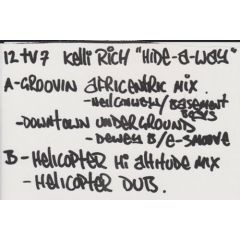 12tV7 Kelli RicH "HiDe-a-way"
A-GROOVIN AFRICENTRIC MIX.
-Neil Conway/BASEMENT
BOYS
-DOWNTOWN UNDERGROUND
-Dewey B/E-SMOOVE
B-HELICOPTER Hi altitude MIX
-HELICOPTER DUB.